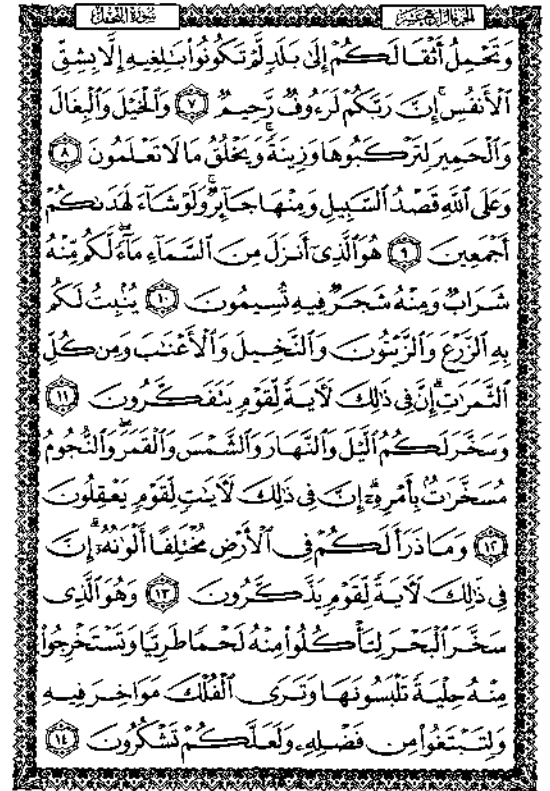 سُورَةُ النَّحْلِ الجُزءُ الرَّابِعُ عَشَرَ
وَتَحْمِلُ أَثْقَالَكُمْ إِلَىٰ بَلَدٍ لَّمْ تَكُونُوا۟ بَٰلِغِيهِ إِلَّا بِشِقِّ
ٱلْأَنفُسِ ۚ إِنَّ رَبَّكُمْ لَرَءُوفٌ رَّحِيمٌ ٧ وَٱلْخَيْلَ وَٱلْبِغَالَ
وَٱلْحَمِيرَ لِتَرْكَبُوهَا وَزِينَةً ۚ وَيَخْلُقُ مَا لَا تَعْلَمُونَ ٨
وَعَلَى ٱللَّهِ قَصْدُ ٱلسَّبِيلِ وَمِنْهَا جَآئِرٌ ۚ وَلَوْ شَآءَ لَهَدَىٰكُمْ
أَجْمَعِينَ ٩ هُوَ ٱلَّذِىٓ أَنزَلَ مِنَ ٱلسَّمَآءِ مَآءً ۖ لَّكُم مِّنْهُ
شَرَابٌ وَمِنْهُ شَجَرٌ فِيهِ تُسِيمُونَ ١٠ يُنۢبِتُ لَكُم
بِهِ ٱلزَّرْعَ وَٱلزَّيْتُونَ وَٱلنَّخِيلَ وَٱلْأَعْنَٰبَ وَمِن كُلِّ
ٱلثَّمَرَٰتِ ۗ إِنَّ فِى ذَٰلِكَ لَءَايَةً لِّقَوْمٍ يَتَفَكَّرُونَ ١١
وَسَخَّرَ لَكُمُ ٱلَّيْلَ وَٱلنَّهَارَ وَٱلشَّمْسَ وَٱلْقَمَرَ ۖ وَٱلنُّجُومُ
مُسَخَّرَٰتٌۢ بِأَمْرِهِۦٓ ۗ إِنَّ فِى ذَٰلِكَ لَءَايَٰتٍ لِّقَوْمٍ يَعْقِلُونَ
١٢ وَمَا ذَرَأَ لَكُمْ فِى ٱلْأَرْضِ مُخْتَلِفًا أَلْوَٰنُهُۥٓ ۗ إِنَّ
فِى ذَٰلِكَ لَءَايَةً لِّقَوْمٍ يَذَّكَّرُونَ ١٣ وَهُوَ ٱلَّذِى
سَخَّرَ ٱلْبَحْرَ لِتَأْكُلُوا۟ مِنْهُ لَحْمًا طَرِيًّا وَتَسْتَخْرِجُوا۟
مِنْهُ حِلْيَةً تَلْبَسُونَهَا وَتَرَى ٱلْفُلْكَ مَوَاخِرَ فِيهِ
وَلِتَبْتَغُوا۟ مِن فَضْلِهِۦ وَلَعَلَّكُمْ تَشْكُرُونَ ١٤